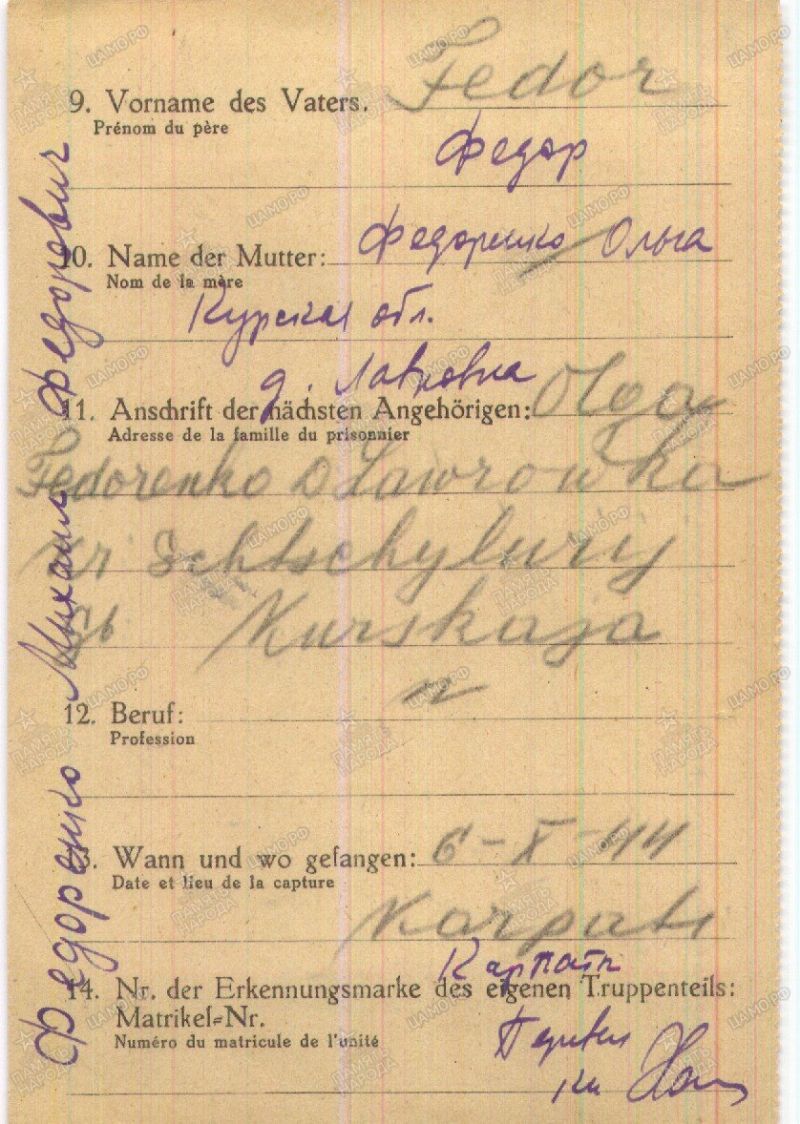 9. Vorname des Vaters. Fedor
Prénom du père
Федор
10. Name der Mutter: Федоренко Ольга
Nom de la mère
Курская обл.
д. Лавровка
11. Anschrift der nächsten Angehörigen: Olga
Adresse de la famille du prisonnier
Fedorenko D Lawrowka
Kurskaja
12. Beruf:
Profession
13. Wann und wo gefangen: 6-X-44
Date et lieu de la capture
Karpati
Карпаты
14. Nr. der Erkennungsmarke des eigenen Truppenteils:
Matrikel=Nr.
Numéro du matricule de l'unité
Федоренко Михаил Федорович
ЦАМО.РФ
ПАМЯТЬ НАРОДА